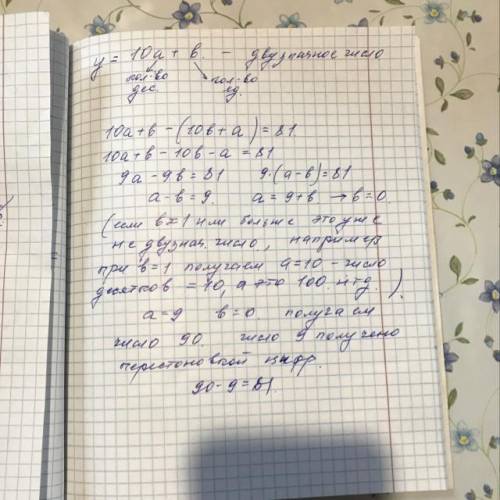 y = 10a + в. - двузначное число
кол-во кол-во
дес. ед.
10a+в-(10в+a)=81.
10a+в-10в-a=81
9a-9в=81 9·(a-в)=81
a-в=9. a=9+в → в=0
(если в=1 или больше это уже
не двузнач. число, например
при в=1 получаем a=10 - число
десятков =10, а это 100. итд.).
a=9 в=0 получаем
число 90. число 9 получено
перестоновкой цифр.
90-9=81.